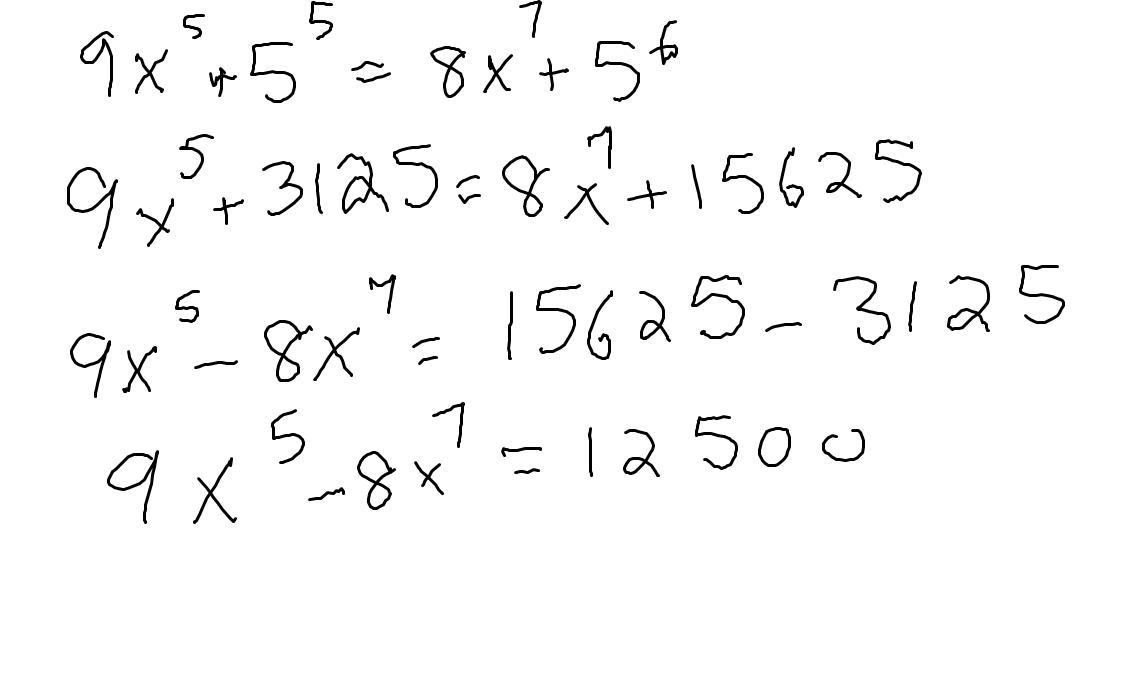 9x⁵+5⁵=8x⁷+5⁶
9x⁵+3125=8x⁷+15625
9x⁵-8x⁷=15625-3125
9x⁵-8x⁷=12500